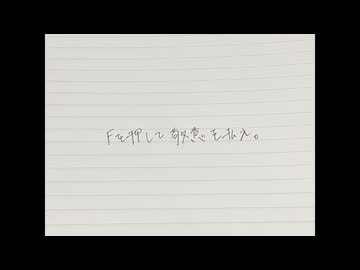 Fを押して敬意を払え。